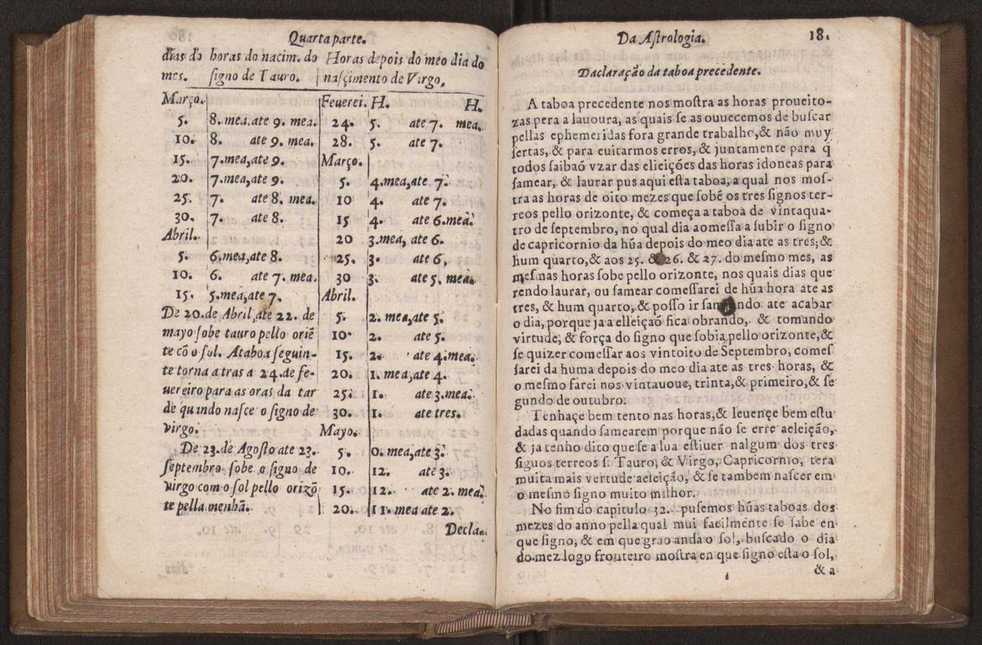 Quarta parte.
dias do horas do nacim. do Horas depois do meo dia do
mes. signo de Tauro. nasçimento de Virgo.
Março. Feuerei. H. H.
5. 8. mea, ate 9. mea. 24. 5. ate 7. mea.
10. 8. ate 9. mea. 28. 5. ate 7.
15. 7. mea, ate 9. Março.
20. 7. mea, ate 9. 5. 4. mea, ate 7.
25. 7. ate 8. mea. 10 4. ate 7.
30. 7. ate 8. 15 4. ate 6. mea.
Abril. 20 3. mea, ate 6.
5. 6. mea, ate 8. 25. 3. ate 6.
10. 6. ate 7. mea. 30 3. ate 5. mea.
15. 5. mea, ate 7. Abril.
De 20. de Abril, ate 22. de 5. 2. mea, ate 5.
mayo sobe tauro pello oriẽ 10. 2. ate 5.
te cõ o sol. A taboa seguin- 15. 2. ate 4. mea.
te torna a tras a 24. de fe- 20. 1. mea, ate 4.
uereiro para as oras da tar 25. 1. ate 3. mea.
de quando nasce o signo de 30. 1. ate tres.
virgo. Mayo.
De 23. de Agosto ate 23. 5. 0. mea, ate 3.
septembro sobe o signo de 10. 12. ate 3.
virgo com o sol pello orizõ 15. 12. ate 2. mea.
te pella menhã. 20. 11. mea ate 2.
Decla-
Da Astrologia. 18.
Daclaração da taboa precedente.
A taboa precedente nos mostra as horas proueito-
zas pera a lauoura, as quais se as ouuecemos de buscar
pellas ephemeridas fora grande trabalho, & não muy
sertas, & para euitarmos erros, & juntamente para q̃
todos saibaõ vzar das elieições das horas idoneas para
samear, & laurar pus aqui esta taboa, a qual nos mos-
tra as horas de oito mezes que sobẽ os tres signos ter-
reos pello orizonte, & começa a taboa de vintaqua-
tro de septembro, no qual dia aomessa a subir o signo
de capricornio da hũa depois do meo dia ate as tres, &
hum quarto, & aos 25. & 26. & 27. do mesmo mes, as
mesnas horas sobe pello orizonte, nos quais dias que
rendo laurar, ou samear comessarei de hũa hora ate as
tres, & hum quarto, & posso ir samando ate acabar
o dia, porque ja a elleição fica obrando, & tomando
virtude, & força do signo que sobia pello orizonte, &
se quizer comessar aos vintoito de Septembro, comes
sarei da huma depois do meo dia ate as tres horas, &
o mesmo farei nos vintauoue, trinta, & primeiro, & se
gundo de outubro.
Tenhaçe bem tento nas horas, & leuençe bem estu
dadas quando samearem porque não se erre aeleição,
& ja tenho dito que se a lua estiuer nalgum dos tres
signos terreos s: Tauro, & Virgo, Capricornio, tera
muita mais vertude aeleição, & se tambem nascer em
o mesmo signo muito milhor.
No fim do capitulo 32. pusemos hũas taboas dos
mezes do anno pella qual mui facilmente se sabe en
que signo, & em que grao anda o sol, buscado o dia
do mez logo fronteiro mostra en que signo esta o sol,
& a